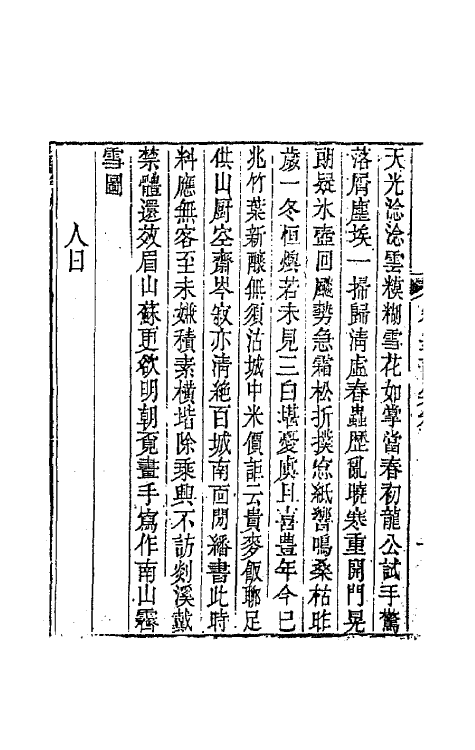 天光淰淰雲糢糊雪花如掌當春初龍公試手驚
落屑塵埃一掃歸清虛春蟲歷亂曉寒重開門晃
朗疑氷壺回飈勢急霜松折撲窓紙響鳴桑枯昨
歲一冬恒燠若未見三白堪憂虞且喜豊年今已
兆竹葉新醸無須沽城中米價詎云貴麥飯聊足
供山厨空齋岑寂亦清絶百城南面閒繙書此時
料應無客至未嫌積素橫堦除乘興不訪剡溪戴
禁體還效眉山蘇更欲明朝覔畫手寫作南山霽
雪圖
人日